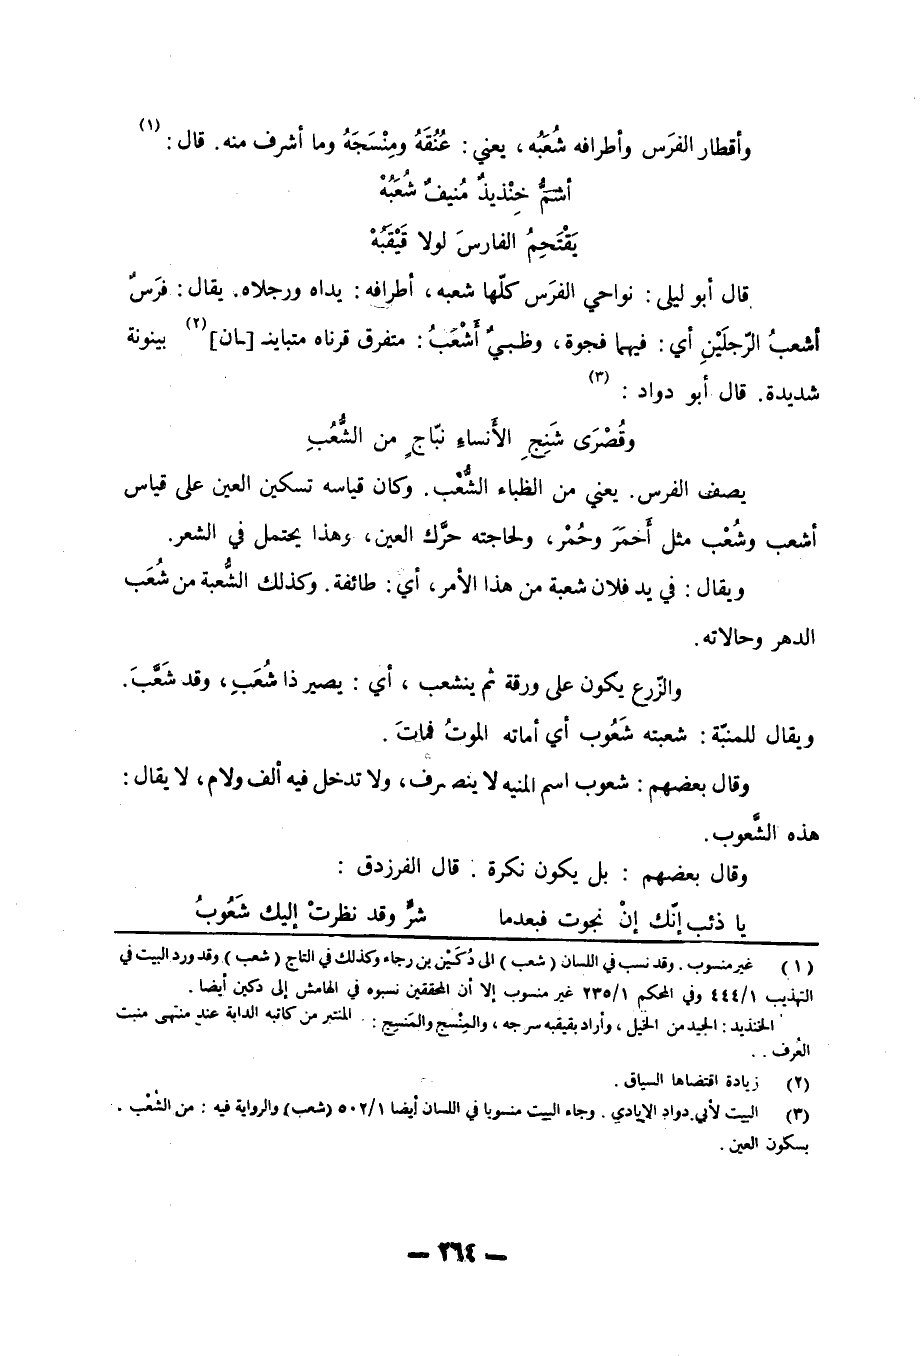 وأقطار الفرَس وأطرافه شُعَبُه ، يعني : عُنُقَهُ ومِنْسَجَهُ وما أشرف منه . قال : (١)
أشمُّ خِنْذيذٌ مُنيفٌ شُعَبُهْ
يَقْتَحِمُ الفارسَ لولا قَيْقَبُهْ
قال أبو ليلى : نواحي الفرَس كلّها شعبه ، أطرافه : يداه ورجلاه . يقال : فرَسٌ
أشعبُ الرّجلَيْنِ أي : فيهما فجوة ، وظبيٌ أَشْعَبُ : متفرق قرناه متباينـ [ـان] (٢) بينونة
شديدة . قال أبو دواد : (٣)
وقُصْرَى شَنِجِ الأَنساءِ نبّاجٍ من الشُّعُبِ
يصف الفرس . يعني من الظباء الشُّعْب . وكان قياسه تسكين العين على قياس
أشعب وشُعْب مثل أَحمَرَ وحُمْر ، ولحاجته حرَّك العين ، وهذا يحتمل في الشعر .
ويقال : في يد فلان شعبة من هذا الأمر ، أي : طائفة . وكذلك الشُّعبة من شُعَب
الدهر وحالاته .
والزّرع يكون على ورقة ثم ينشعب ، أي : يصير ذا شُعَبٍ ، وقد شَعَّبَ .
ويقال للمنيّة : شعبته شَعُوب أي أماته الموتُ فماتَ .
وقال بعضهم : شعوب اسم المنيه لا ينصرف ، ولا تدخل فيه ألف ولام ، لا يقال :
هذه الشَّعوب .
وقال بعضهم : بل يكون نكرة . قال الفرزدق :
يا ذئب إنّك إنْ نجوت فبعدما شرٌّ وقد نظرتْ إليك شَعُوبُ
(١) غير منسوب . وقد نسب في اللسان ( شعب ) الى دُكَيْن بن رجاء وكذلك في التاج ( شعب ) وقد ورد البيت في
التهذيب ٤٤٤/١ وفي المحكم ٢٣٥/١ غير منسوب إلا أن المحققين نسبوه في الهامش إلى دكين أيضا .
الخنذيذ : الجيد من الخيل ، وأراد بقيقبه سرجه ، والمِنْسج والمَنسِج : المنتبر من كاثبه الدابة عند منتهى منبت
العُرف . .
(٢) زيادة اقتضاها السياق .
(٣) البيت لأبي دواد الإيادي . وجاء البيت منسوبا في اللسان أيضا ٥٠٢/١ (شعب) والرواية فيه : من الشُعْب .
بسكون العين .
— ٢٦٤ —